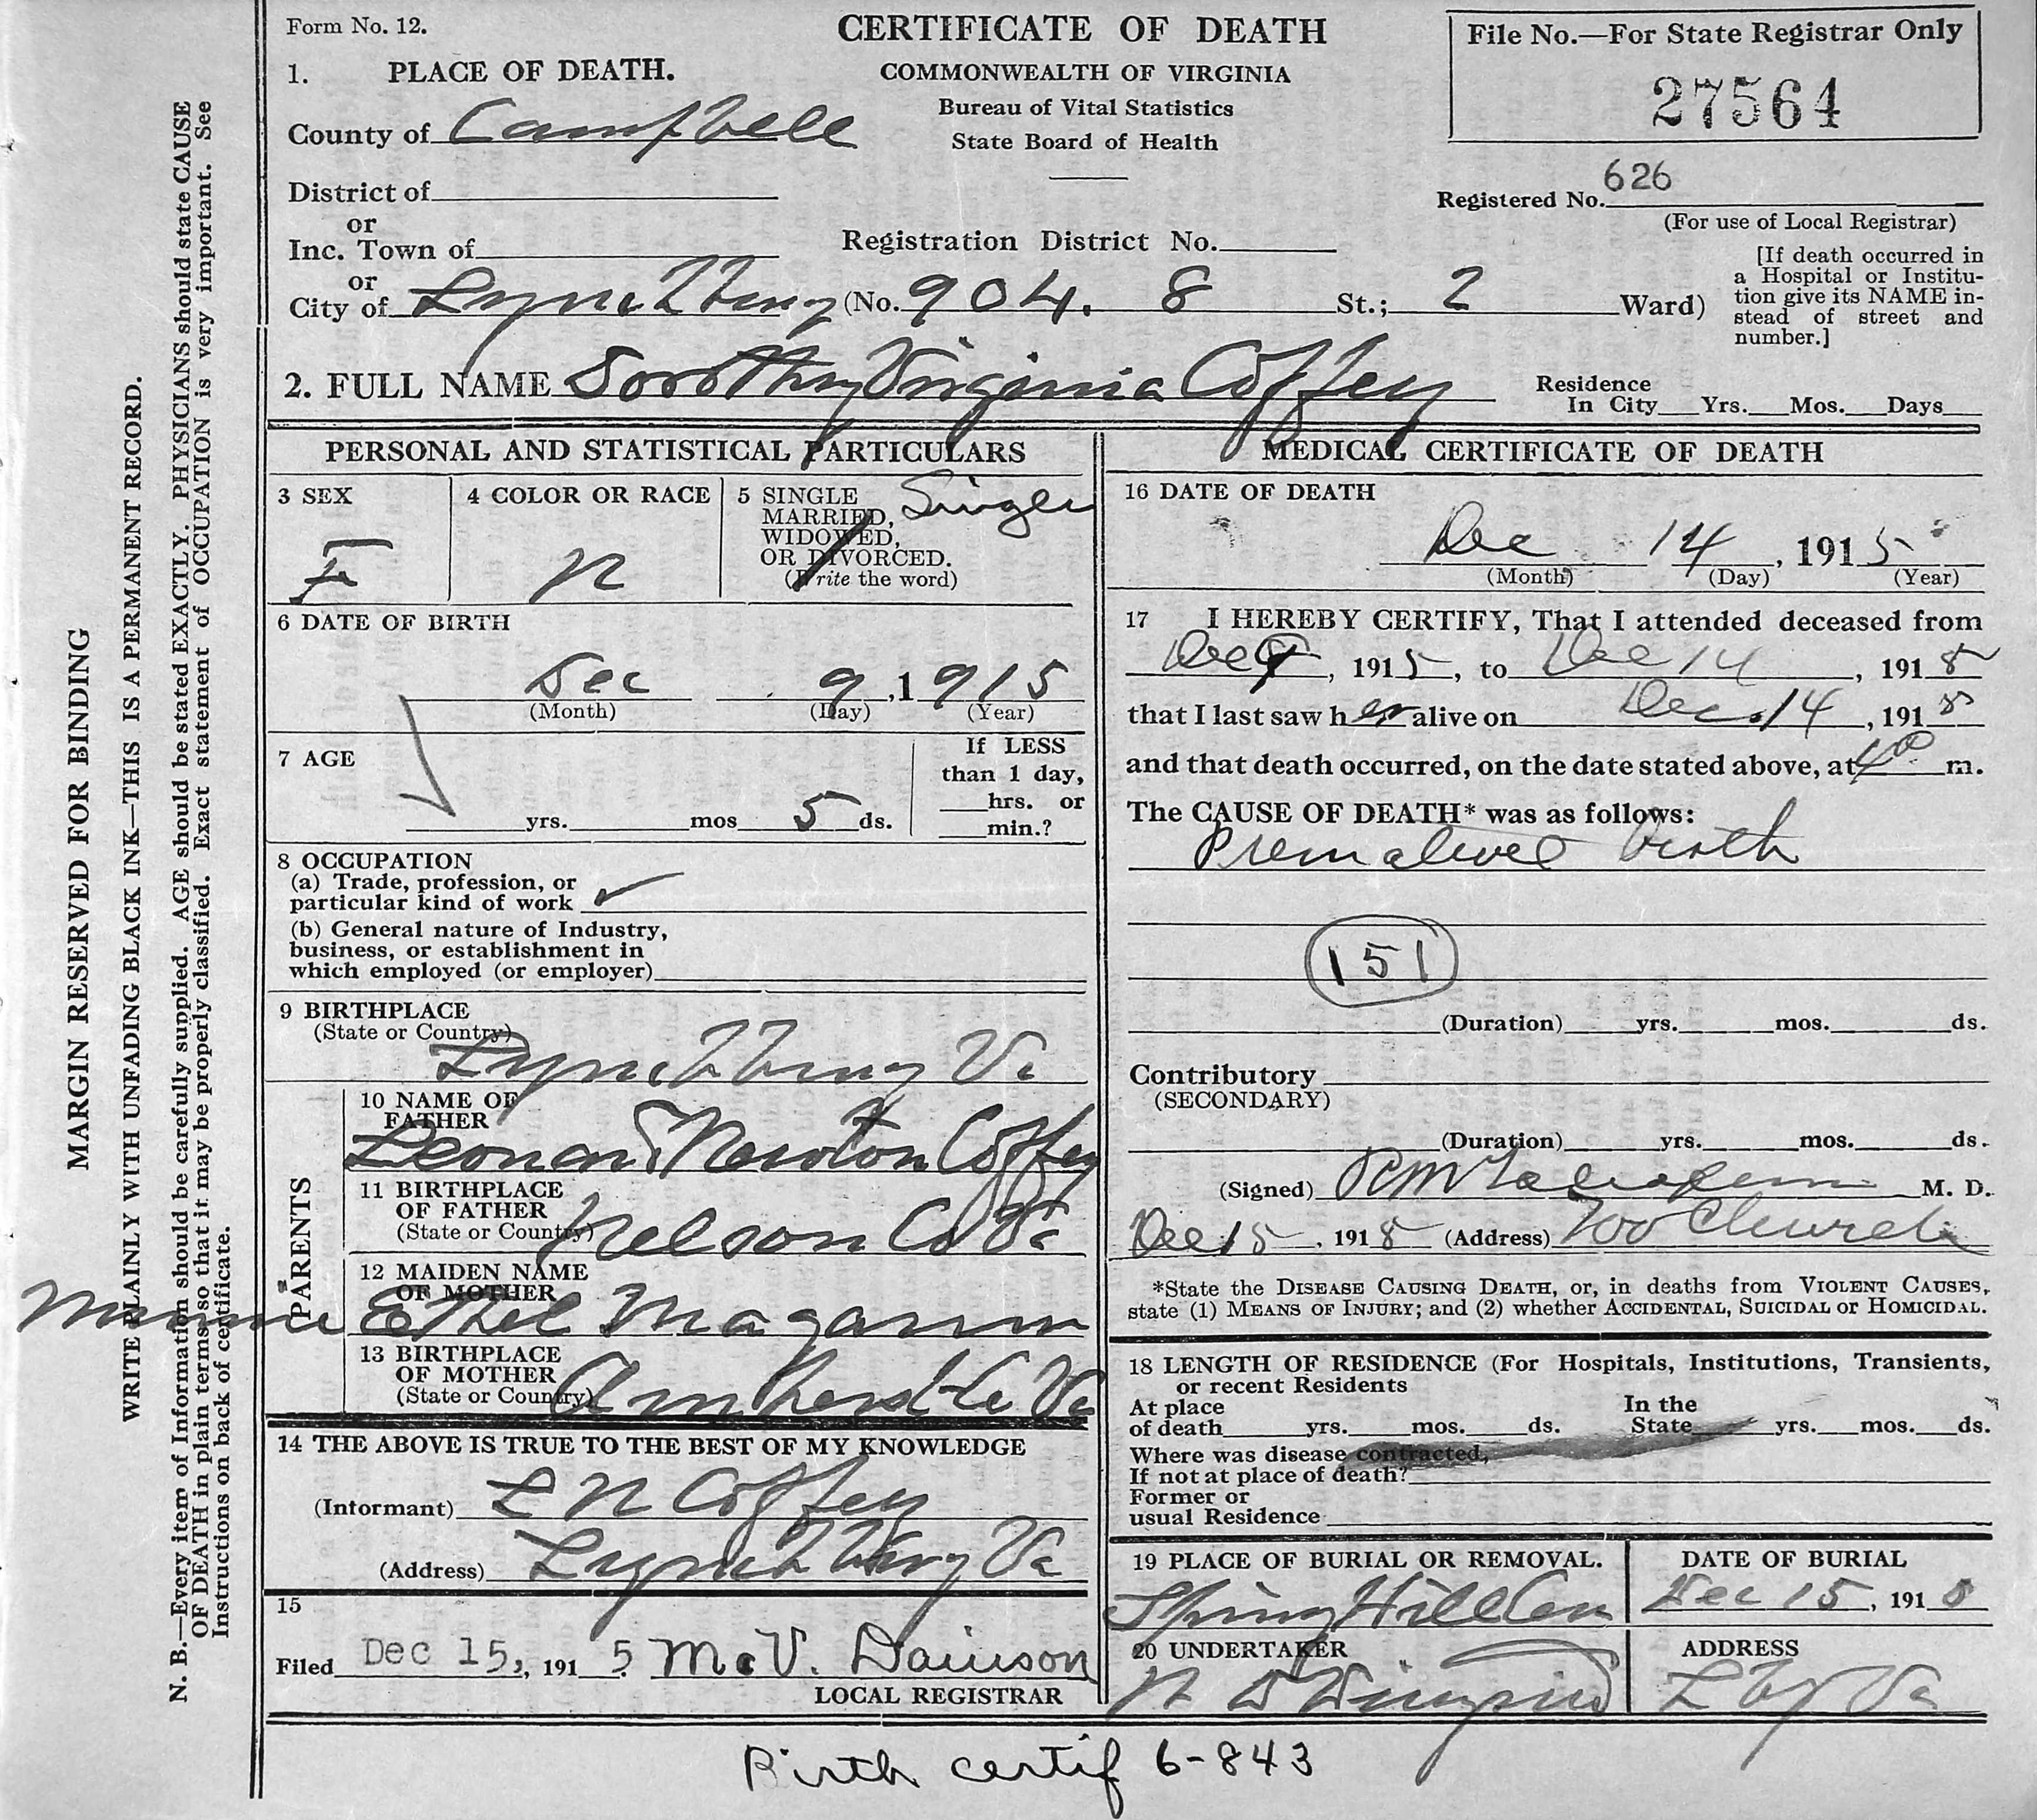 Form No. 12.
CERTIFICATE OF DEATH
COMMONWEALTH OF VIRGINIA
Bureau of Vital Statistics
State Board of Health
File No.—For State Registrar Only
27564
1. PLACE OF DEATH.
County of Campbell
District of
or
Inc. Town of
Registration District No.
Registered No. 626
(For use of Local Registrar)
or
City of Lynchburg (No. 904. 8 St.; 2 Ward)
[If death occurred in
a Hospital or Institu-
tion give its NAME in-
stead of street and
number.]
2. FULL NAME Dorothy Virginia Coffey
Residence
In City Yrs. Mos. Days
PERSONAL AND STATISTICAL PARTICULARS
3 SEX
F
4 COLOR OR RACE
5 SINGLE
MARRIED,
WIDOWED,
OR DIVORCED.
(Write the word)
Single
6 DATE OF BIRTH
Dec 9, 1915
(Month) (Day) (Year)
7 AGE
yrs. mos 5 ds.
If LESS
than 1 day,
hrs. or
min.?
8 OCCUPATION
(a) Trade, profession, or
particular kind of work ✓
(b) General nature of Industry,
business, or establishment in
which employed (or employer)
9 BIRTHPLACE
(State or Country)
Lynchburg Va
PARENTS
10 NAME OF
FATHER
Leonard Newton Coffey
11 BIRTHPLACE
OF FATHER
(State or Country)
Nelson Co Va
12 MAIDEN NAME
OF MOTHER
Ethel Magann
13 BIRTHPLACE
OF MOTHER
(State or Country)
Amherst Co Va
14 THE ABOVE IS TRUE TO THE BEST OF MY KNOWLEDGE
(Informant) L N Coffey
(Address) Lynchburg Va
15
Filed Dec 15, 1915
LOCAL REGISTRAR
MEDICAL CERTIFICATE OF DEATH
16 DATE OF DEATH
Dec 14, 1915
(Month) (Day) (Year)
17 I HEREBY CERTIFY, That I attended deceased from
Dec 9, 1915, to Dec 14, 1915
that I last saw her alive on Dec. 14, 1915
and that death occurred, on the date stated above, at m.
The CAUSE OF DEATH* was as follows:
Premature birth
151
(Duration) yrs. mos. ds.
Contributory
(SECONDARY)
(Duration) yrs. mos. ds.
(Signed) M. D.
Dec 15, 1915 (Address) 700 Church
*State the DISEASE CAUSING DEATH, or, in deaths from VIOLENT CAUSES,
state (1) MEANS OF INJURY; and (2) whether ACCIDENTAL, SUICIDAL or HOMICIDAL.
18 LENGTH OF RESIDENCE (For Hospitals, Institutions, Transients,
or recent Residents
At place
of death yrs. mos. ds.
In the
State yrs. mos. ds.
Where was disease contracted,
If not at place of death?
Former or
usual Residence
19 PLACE OF BURIAL OR REMOVAL.
Spring Hill Cem
DATE OF BURIAL
Dec 15, 1915
20 UNDERTAKER
ADDRESS
Lbg Va
Birth certif 6-843
MARGIN RESERVED FOR BINDING
WRITE PLAINLY WITH UNFADING BLACK INK—THIS IS A PERMANENT RECORD.
N. B.—Every item of Information should be carefully supplied. AGE should be stated EXACTLY. PHYSICIANS should state CAUSE
OF DEATH in plain terms so that it may be properly classified. Exact statement of OCCUPATION is very important. See
Instructions on back of certificate.